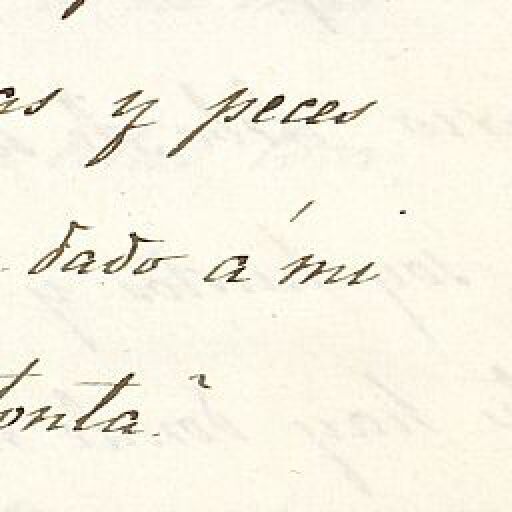 as y peces
dado á mi
tonta."